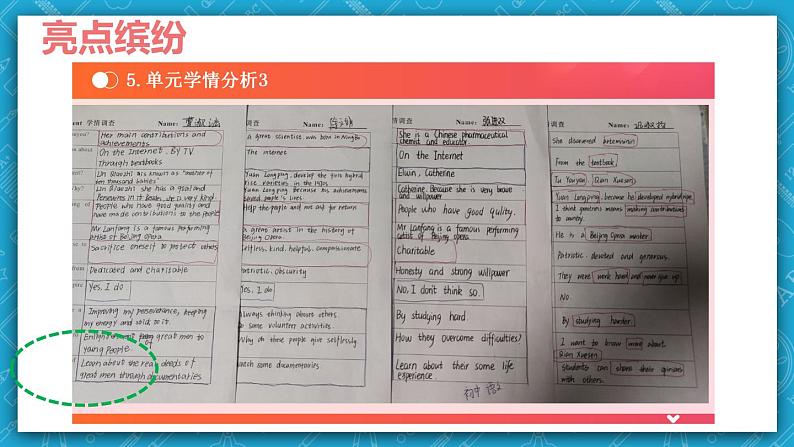 亮点缤纷
5. 单元学情分析3
ent 学情调查 Name:
Her main contributions and
achievements
On the Internet. By TV
Through textbooks
Lin Qiaozhi is known as "mother of
ten thousand babies"
People who have good quality and
have made contributions to the people
Mei Lanfang is a famous performing
artist of Beijing Opera
Sacrifice oneself to protect others
Dedicated and charitable
Yes, I do
Improving my perseverance, keeping
my energy and stick to it.
great men to
young people.
Learn about the real deeds of
great men through documentaries
调查 Name:
A great scientist, was born in Ningbo
The internet
Yuan Longping, develop the first hybrid
rice varieties in the 1970s
Yuan Longping because his achievements
saved people's lives
Help the people and not ask for return
A great artist in the history of
Beijing Opera
selfless, kind, helpful, compassionate
Patriotic, obscurity
Yes, I do
Always thinking about others.
Do some volunteer activities.
Why do these people give selflessly.
watch some documentaries
情调查 Name:
She is a Chinese pharmaceutical
chemist and educator
On the Internet
Elwin, Catherine
Catherine. Because she is very brave
and willpower
People who have good qulity.
Mr Lanfang is a famous performing
artist of Beijing opera
Charitable
Honesty and strong willpower
No, I don't think so.
By studying hard.
How they overcome difficulties?
Learn about their some life
experience.
调查 Name:
She discovered artemisinin
From the textbook
Tu Youyou, Qian Xuesen
Yuan Longping, because he developed hybrid rice
I think greatness means making contributions
to
He is a Beijing Opera master
Patriotic, devoted and generous.
They were work hard and never give up
No.
By studying harder.
I want to know more about
Qian Xuesen
Students can share their opinions
with others.